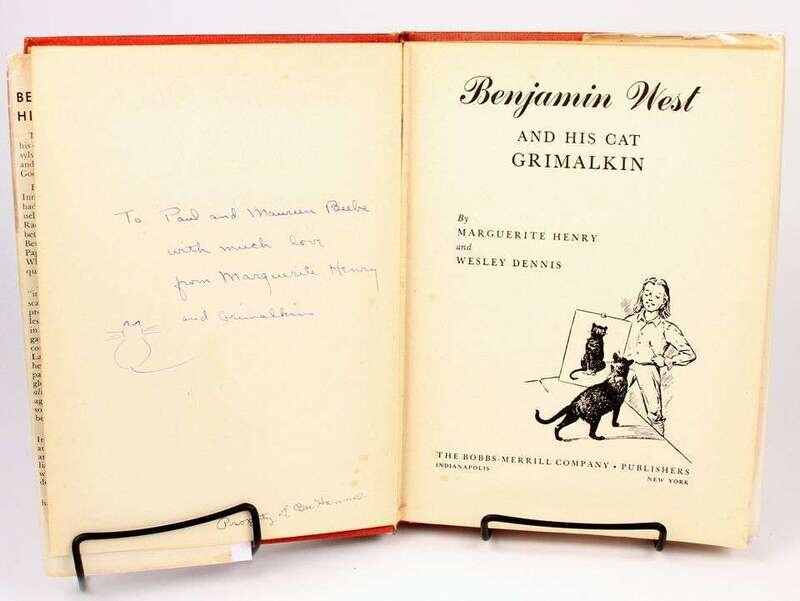 BE
HI
To Paul and Maureen Beebe
with much love
from Marguerite Henry
and Grimalkin
Property of
Benjamin West
AND HIS CAT
GRIMALKIN
By
MARGUERITE HENRY
and
WESLEY DENNIS
THE BOBBS-MERRILL COMPANY • PUBLISHERS
INDIANAPOLIS
NEW YORK